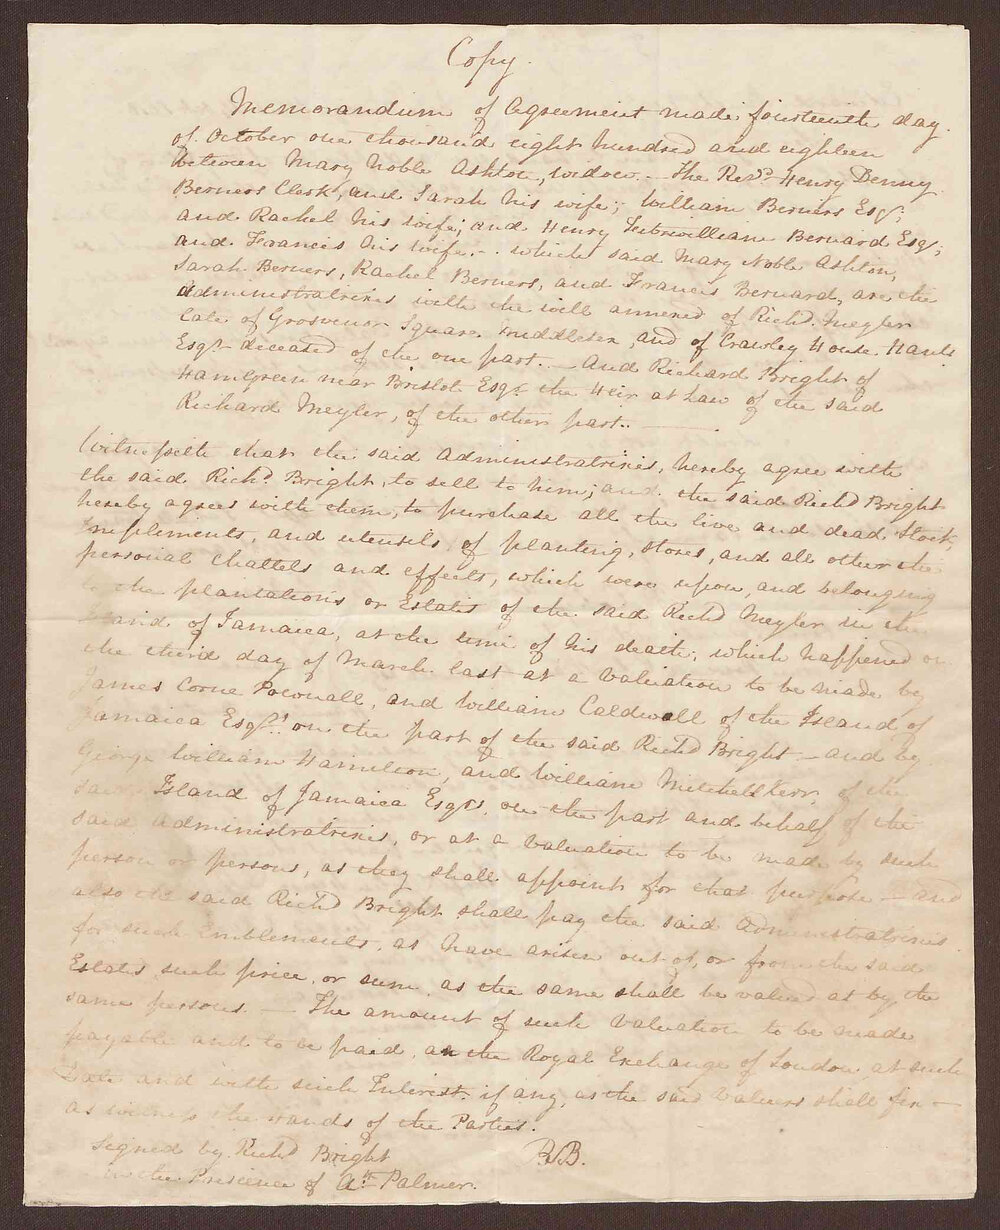 Copy.
Memorandum of Agreement made fourteenth day
of October one thousand eight hundred and eighteen
between Mary Noble Ashton, widow - The Revd. Henry Denny
Berners Clerk, and Sarah his wife; William Berners Esqr;
and Rachel his wife; and Henry Bernard Esqr;
and Francis his wife, - which said Mary Noble Ashton,
Sarah Berners, Rachel Berners, and Francis Bernard, are the
administratrixes with the will annexed of Richd. Meyler
late of Grosvenor Square Middlesex, and of Crawley House Hants
Esqr. deceased of the one part. - And Richard Bright of
HamGreen near Bristol Esqr the Heir at Law of the said
Richard Meyler, of the other part. -
Witnesseth that the said Administratrixes, hereby agree with
the said Richd Bright, to sell to him; and the said Richd Bright
hereby agrees with them, to purchase all the live and dead Stock,
Implements, and utensils, of planting, stores, and all other the
personal chattels and effects, which were upon, and belonging
to the plantations or Estates of the said Richd Meyler in the
Island of Jamaica, at the time of his death; which happened on
the third day of March last at a valuation to be made by
James Corne Pownall, and William Caldwell of the Island of
Jamaica Esqrs. on the part of the said Richd Bright - and by
George William Hamilton, and William Mitchell Kerr, of the
said Island of Jamaica Esqrs. on the part and behalf of the
said Administratrixes, or at a valuation to be made by such
person or persons, as they shall appoint for that purpose - and
also the said Richd Bright shall pay the said Administratrixes
for such Emblements, as have arisen out of, or from the said
Estates such price, or sum, as the same shall be valued at by the
same persons. - The amount of such Valuation to be made
payable and to be paid, on the Royal Exchange of London, at such
Date and with such Interest, if any, as the said Valuers shall fix -
as witness the Hands of the Parties.
Signed by Richd Bright R.B.
in the Presence of Ar. Palmer.